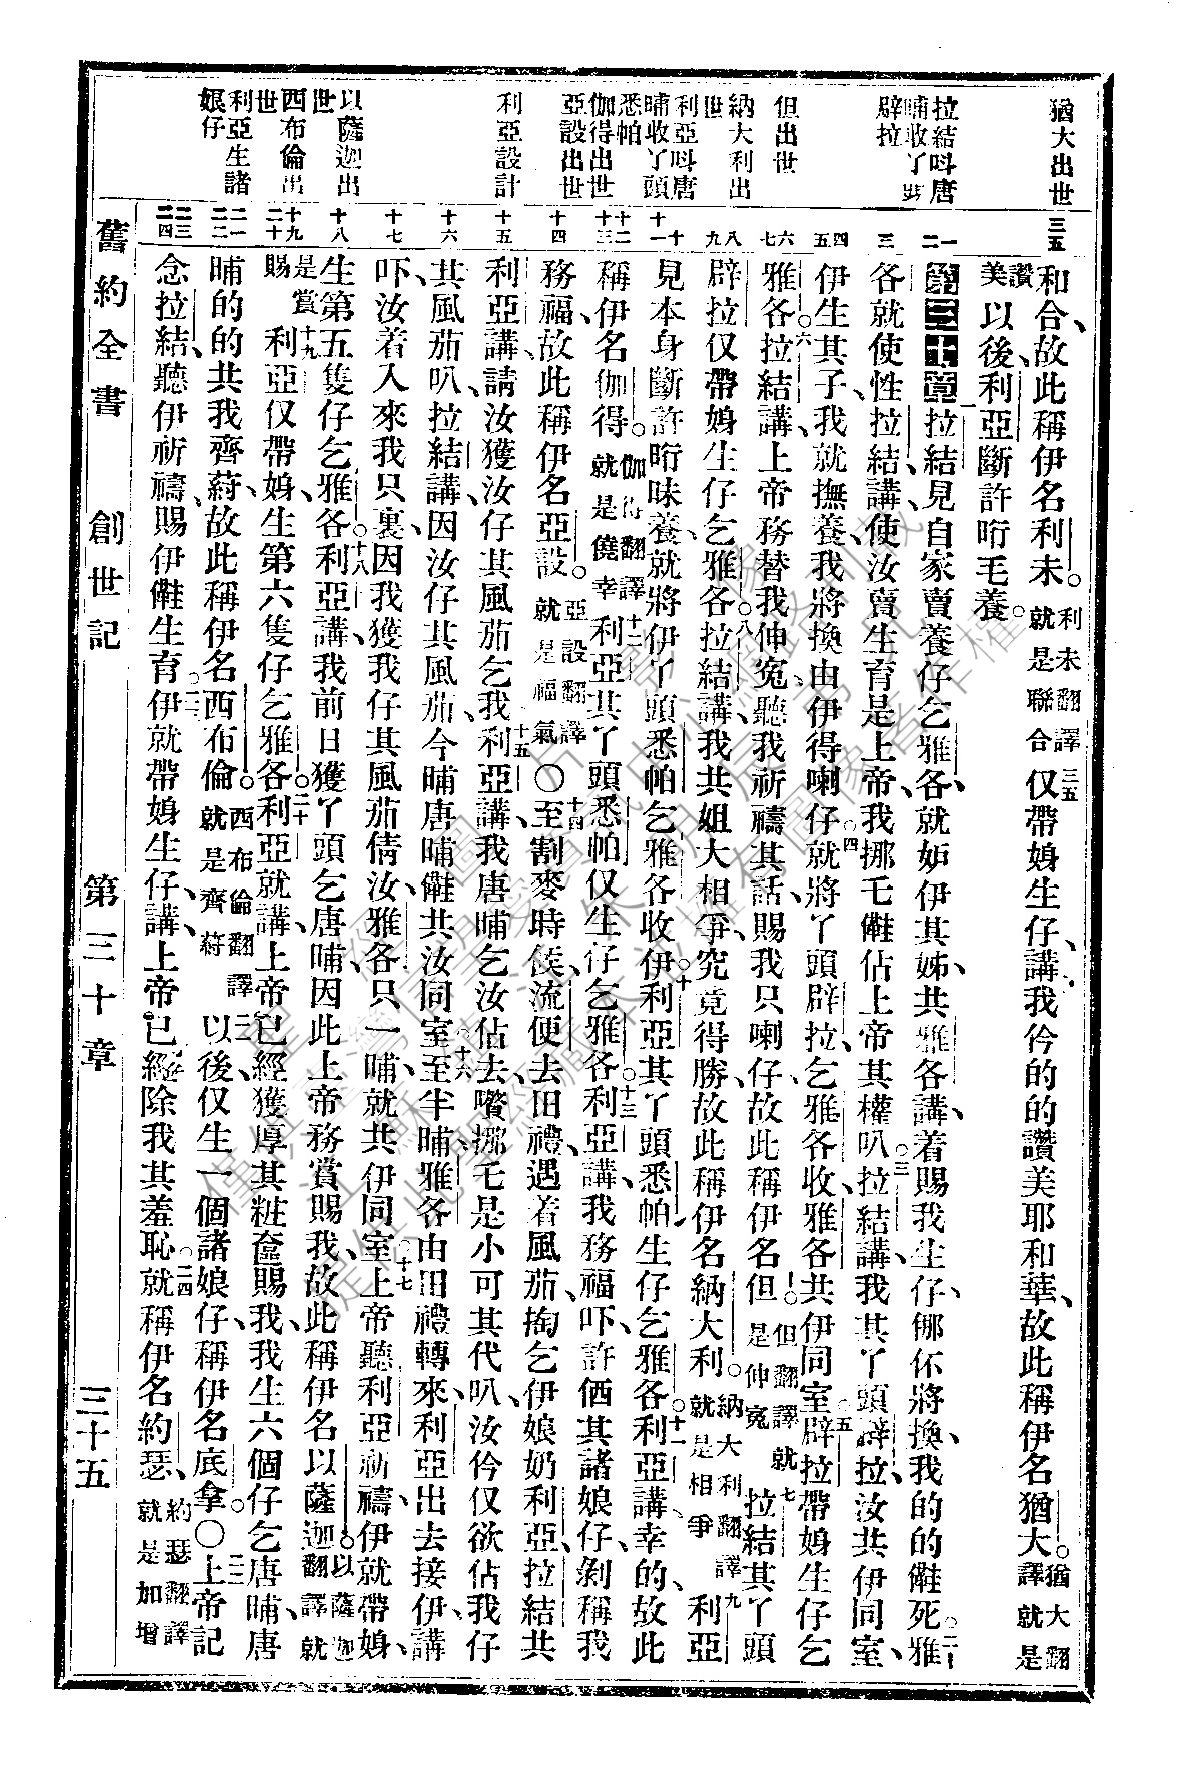 猶大出世
拉結呌唐
晡收丫頭
辟拉
但出世
納大利出
世
利亞呌唐
晡收丫頭
悉帕
伽得出世
亞設出世
利亞設計
以薩迦出
世
西布倫出
世
利亞生諸
娘仔
和合、故此稱伊名利未。利未翻譯就是聯合三五仅帶娒生仔、講、我仱的的讚美耶和華、故此稱伊名猶大。猶大翻譯就是
讚美以後利亞斷許昕乇養。
第三十章一拉結見自家賣養仔乞雅各、就妒伊其姊、共雅各講、着賜我生仔、㑚伓將換我的的𣍐死。二雅
各就使性拉結講、使汝賣生育是上帝、我挪乇𣍐佔上帝其權叭。三拉結講、我其丫頭辟拉、汝共伊同室、
伊生其子、我就撫養、我將換由伊得喇仔。四就將丫頭辟拉乞雅各收、雅各共伊同室。五辟拉帶娒生仔乞
雅各。六拉結講、上帝務替我伸寃、聽我祈禱其話、賜我只喇仔、故此稱伊名但。但翻譯就是伸寃七拉結其丫頭
辟拉仅帶娒生仔乞雅各。八拉結講、我共姐大相爭、究竟得勝、故此稱伊名納大利。納大利翻譯就是相爭九利亞
見本身斷許昕味養、就將伊丫頭悉帕、乞雅各收。十伊利亞其丫頭悉帕生仔乞雅各。十一利亞講、幸的、故此
稱伊名伽得。伽得翻譯就是僥幸十二利亞其丫頭悉帕仅生仔乞雅各。十三利亞講、我務福吓、許偤其諸娘仔、剝稱我
務福、故此稱伊名亞設。亞設翻譯就是福氣〇十四至割麥時侯、流便去田禮、遇着風茄、掏乞伊娘奶利亞、拉結共
利亞講、請汝獲汝仔其風茄乞我。十五利亞講、我唐晡乞汝佔去、嘴挪乇是小可其代叭、汝仱仅欲佔我仔
其風茄叭、拉結講、因汝仔其風茄、今晡唐晡𣍐共汝同室。十六至半晡雅各由田禮轉來、利亞出去接伊、講
吓、汝着入來我只裏、因我獲我仔其風茄倩汝、雅各只一晡就共伊同室。十七上帝聽利亞祈禱、伊就帶娒、
生第五隻仔乞雅各。十八利亞講、我前日獲丫頭乞唐晡、因此上帝務賞賜我、故此稱伊名以薩迦。以薩迦翻譯就
是賞賜十九利亞仅帶娒、生第六隻仔乞雅各。二十利亞就講、上帝已經獲厚其粧奩賜我、我生六個仔乞唐晡、唐
晡的的共我齊䔟、故此稱伊名西布倫。西布倫翻譯就是齊䔟二一以後仅生一個諸娘仔、稱伊名底拿。〇二二上帝記
念拉結、聽伊祈禱、賜伊𣍐生育。二三伊就帶娒生仔、講、上帝已經除我其羞恥。二四就稱伊名約瑟、約瑟翻譯就是加增
舊約全書　創世記　第三十章　三十五